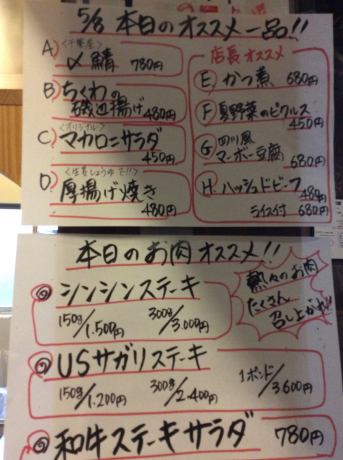 5/8 本日のオススメ一品!!
A) <千葉産>
〆鯖 780円
B) ちくわの
磯辺揚げ 480円
C) <オリジナル>
マカロニサラダ
450円
D) <生姜しょうゆで!!>
厚揚げ焼き
480円
店長オススメ
E かつ煮 680円
F 夏野菜のピクルス
450円
G 四川風
マーボー豆腐
680円
H. ハッシュドビーフ
480円
ライス付 680円
本日のお肉オススメ!!
熱々のお肉
たくさん
召し上がれ!!
◎ シンシンステーキ
150g/1,500円 300g/3,000円
◎ USサガリステーキ
150g/1,200円 300g/2,400円 1ポンド/3,600円
◎ 和牛ステーキサラダ 780円